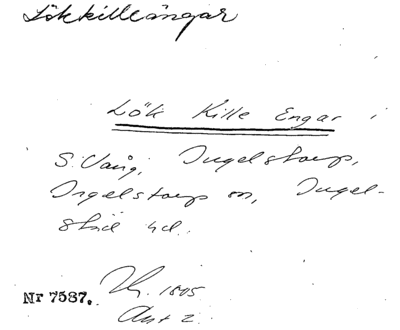 Lökkilleängar
Lök Kille Engar
S. Vång, Ingelstorp,
Ingelstorp sn, Ingel-
stad hd.
Nr 7587. 1805
Akt 2.